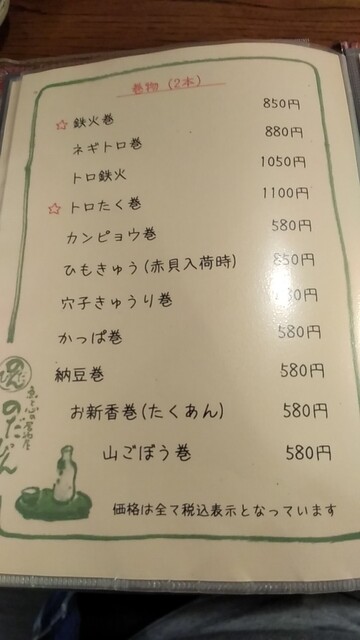 巻物(2本)
☆鉄火巻 850円
ネギトロ巻 880円
トロ鉄火 1050円
☆トロたく巻 1100円
カンピョウ巻 580円
ひもきゅう(赤貝入荷時) 850円
穴子きゅうり巻 80円
かっぱ巻 580円
納豆巻 580円
お新香巻(たくあん) 580円
山ごぼう巻 580円
価格は全て税込表示となっています